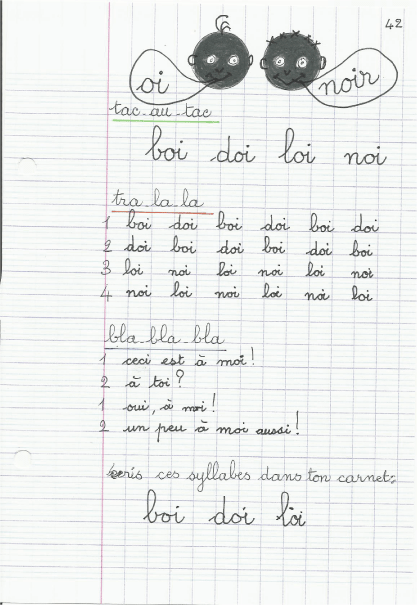 42
oi noir
tac-au-tac
boi doi loi noi
tra-la-la
1 boi doi boi doi boi doi
2 doi boi doi boi doi boi
3 loi noi loi noi loi noi
4 noi loi noi loi noi loi
bla-bla-bla
1 ceci est à moi!
2 à toi?
1 oui, à moi!
2 un peu à moi aussi!
écris ces syllabes dans ton carnet:
boi doi loi